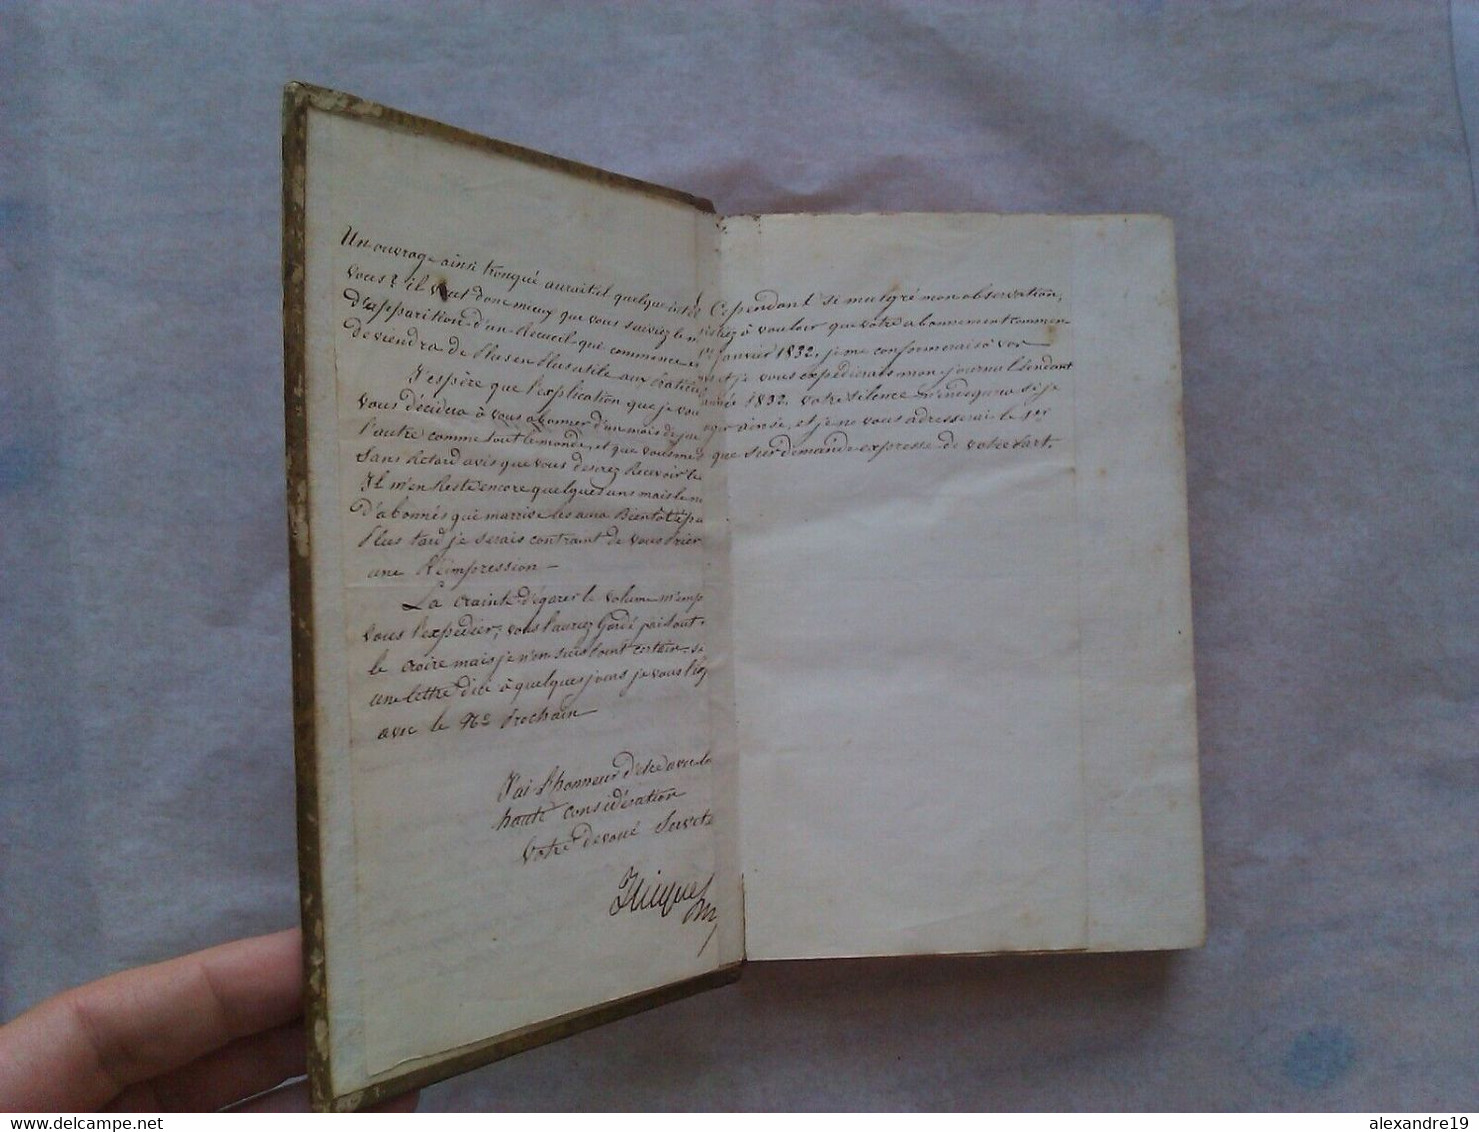 Un ouvrage ainsi tronqué aurait-il quelque
vous? il vaut donc mieux que vous suiviez le
d'apparition d'un Recueil qui commence et
deviendra de Plus en Plus utile aux Praticie
J'espère que l'explication que je vou
vous décidera à vous abonner d'un mois de
l'autre comme tout le monde, et que vous
Sans Retard avis que vous desirez Recevoir le
Il m'en Reste encore quelques uns mais le n
d'abonnés qui m'arrive les aura Bientôt épu
Plus tard je serais contraint de vous Prier
une Réimpression —
La crainte d'égarer le volume m'emp
vous l'expedier; vous l'auriez Gardé
le croire mais je n'en suis Point certain - si
une lettre d'ici à quelques jours je vous l'
avec le No Prochain —
J'ai l'honneur d'etre avec la
haute considération
Votre Devoué
Cependant si malgré mon observation,
à vouloir que votre abonnement commen
1er janvier 1832, je me conformerais à vos
et je vous expédierais mon journal Pendant
année 1832. votre silence m'indiquera si je
agir ainsi, et je ne vous adresserai le 1er
que sur demande expresse de votre Part.
alexandre19